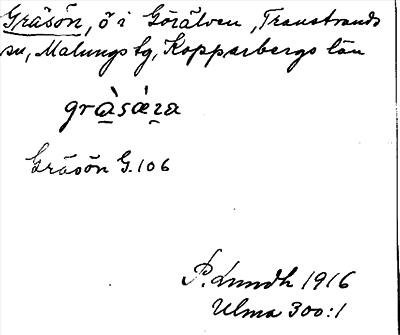 Gräsön, ö i Görälven, Transtrands
sn, Malungs tg, Kopparbergs län
gräsön G.106
P. Lundh 1916
Ulma 300:1